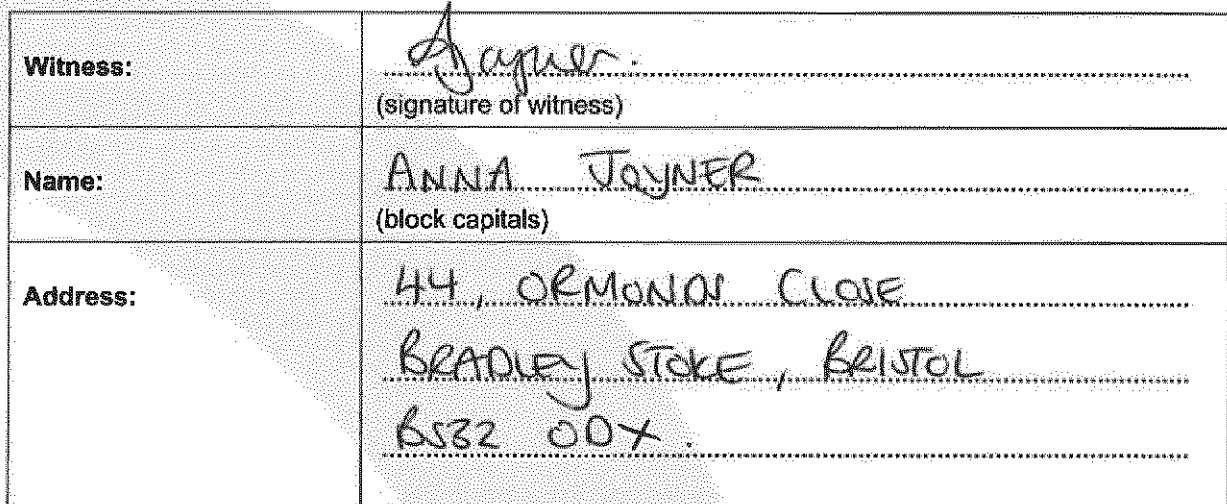 Witness: AJoyner.
(signature of witness)
Name: ANNA JOYNER
(block capitals)
Address: 44, ORMONDS CLOSE
BRADLEY STOKE, BRISTOL
BS32 0DX.